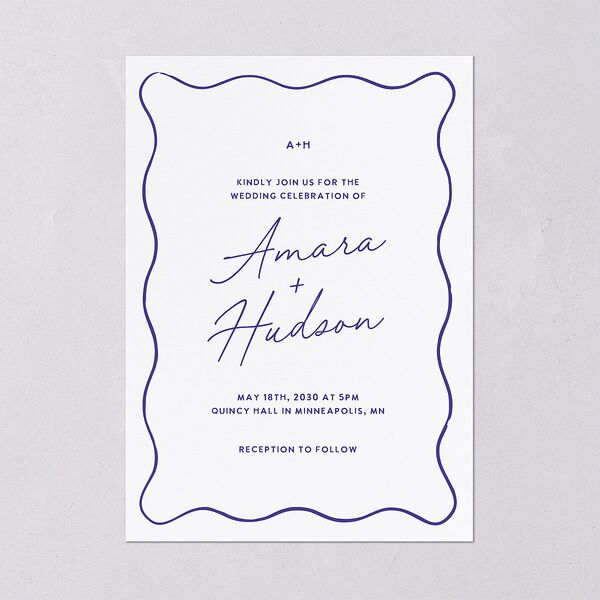 A+H
KINDLY JOIN US FOR THE
WEDDING CELEBRATION OF
Amara
+
Hudson
MAY 18TH, 2030 AT 5PM
QUINCY HALL IN MINNEAPOLIS, MN
RECEPTION TO FOLLOW